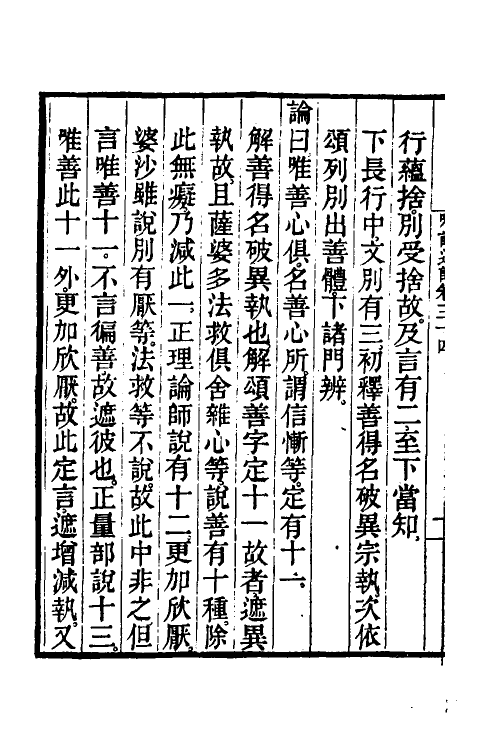 行蘊捨。別受捨故。及言有二。至下當知。
下長行中。文別有三。初釋善得名破異宗執。次依
頌列別出善體。下諸門辨。
論曰唯善心俱。名善心所。謂信慚等。定有十一。
解善得名破異執也。解頌善字定十一故者。遮異
執故。且薩婆多法救俱舍雜心等。說善有十種。除
此無癡。乃減此一。正理論師說有十二。更加欣厭。
婆沙雖說別有厭等。法救等不說。故此中非之。但
言唯善十一。不言徧善。故遮彼也。正量部說十三。
唯善此十一外。更加欣厭。故此定言。遮增減執。又